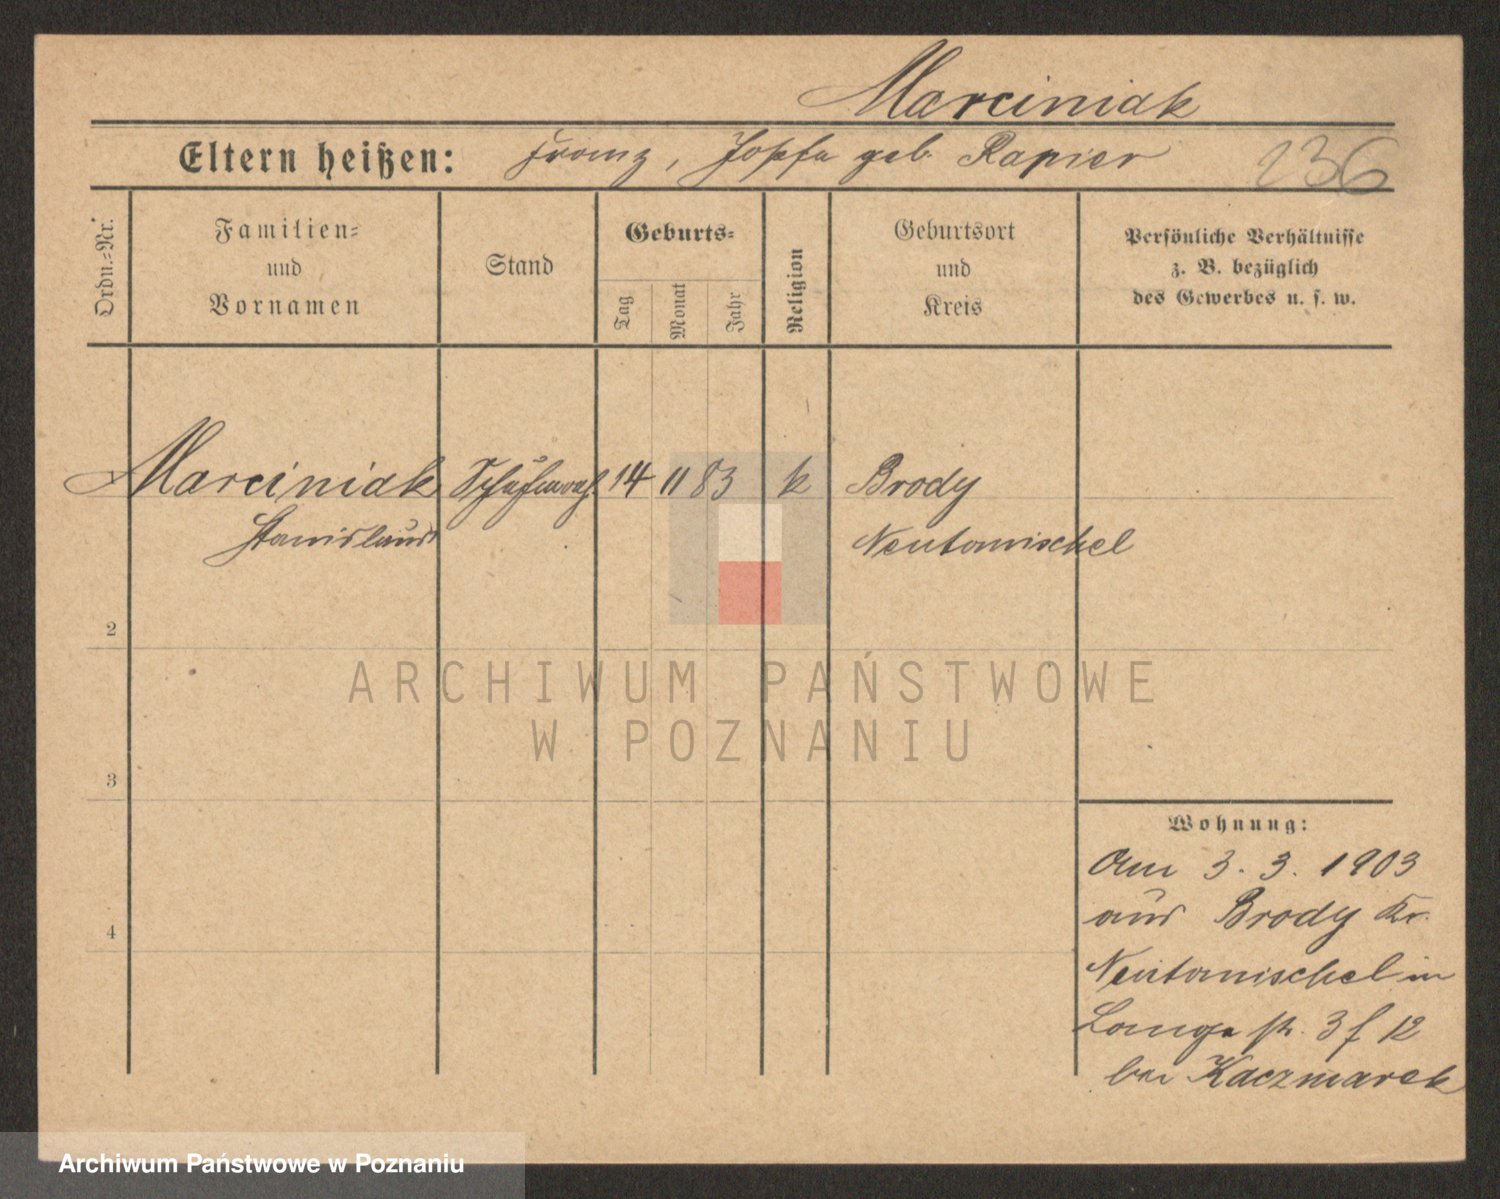 Marciniak
Eltern heißen: Franz, Josefa geb. Rapier 236
Ordn.-Nr.
Familien-
und
Vornamen
Stand
Geburts-
Tag
Monat
Jahr
Religion
Geburtsort
und
Kreis
Persönliche Verhältnisse
z. B. bezüglich
des Gewerbes u. s. w.
Marciniak Schuhmach. 14 11 83 k Brody
Stanislaus Neutomischel
2
3
4
Wohnung:
Am 3. 3. 1903
aus Brody Kr.
Neutomischel in
Lange str. 3 f 12
bei Kaczmarek
ARCHIWUM PAŃSTWOWE
W POZNANIU
Archiwum Państwowe w Poznaniu